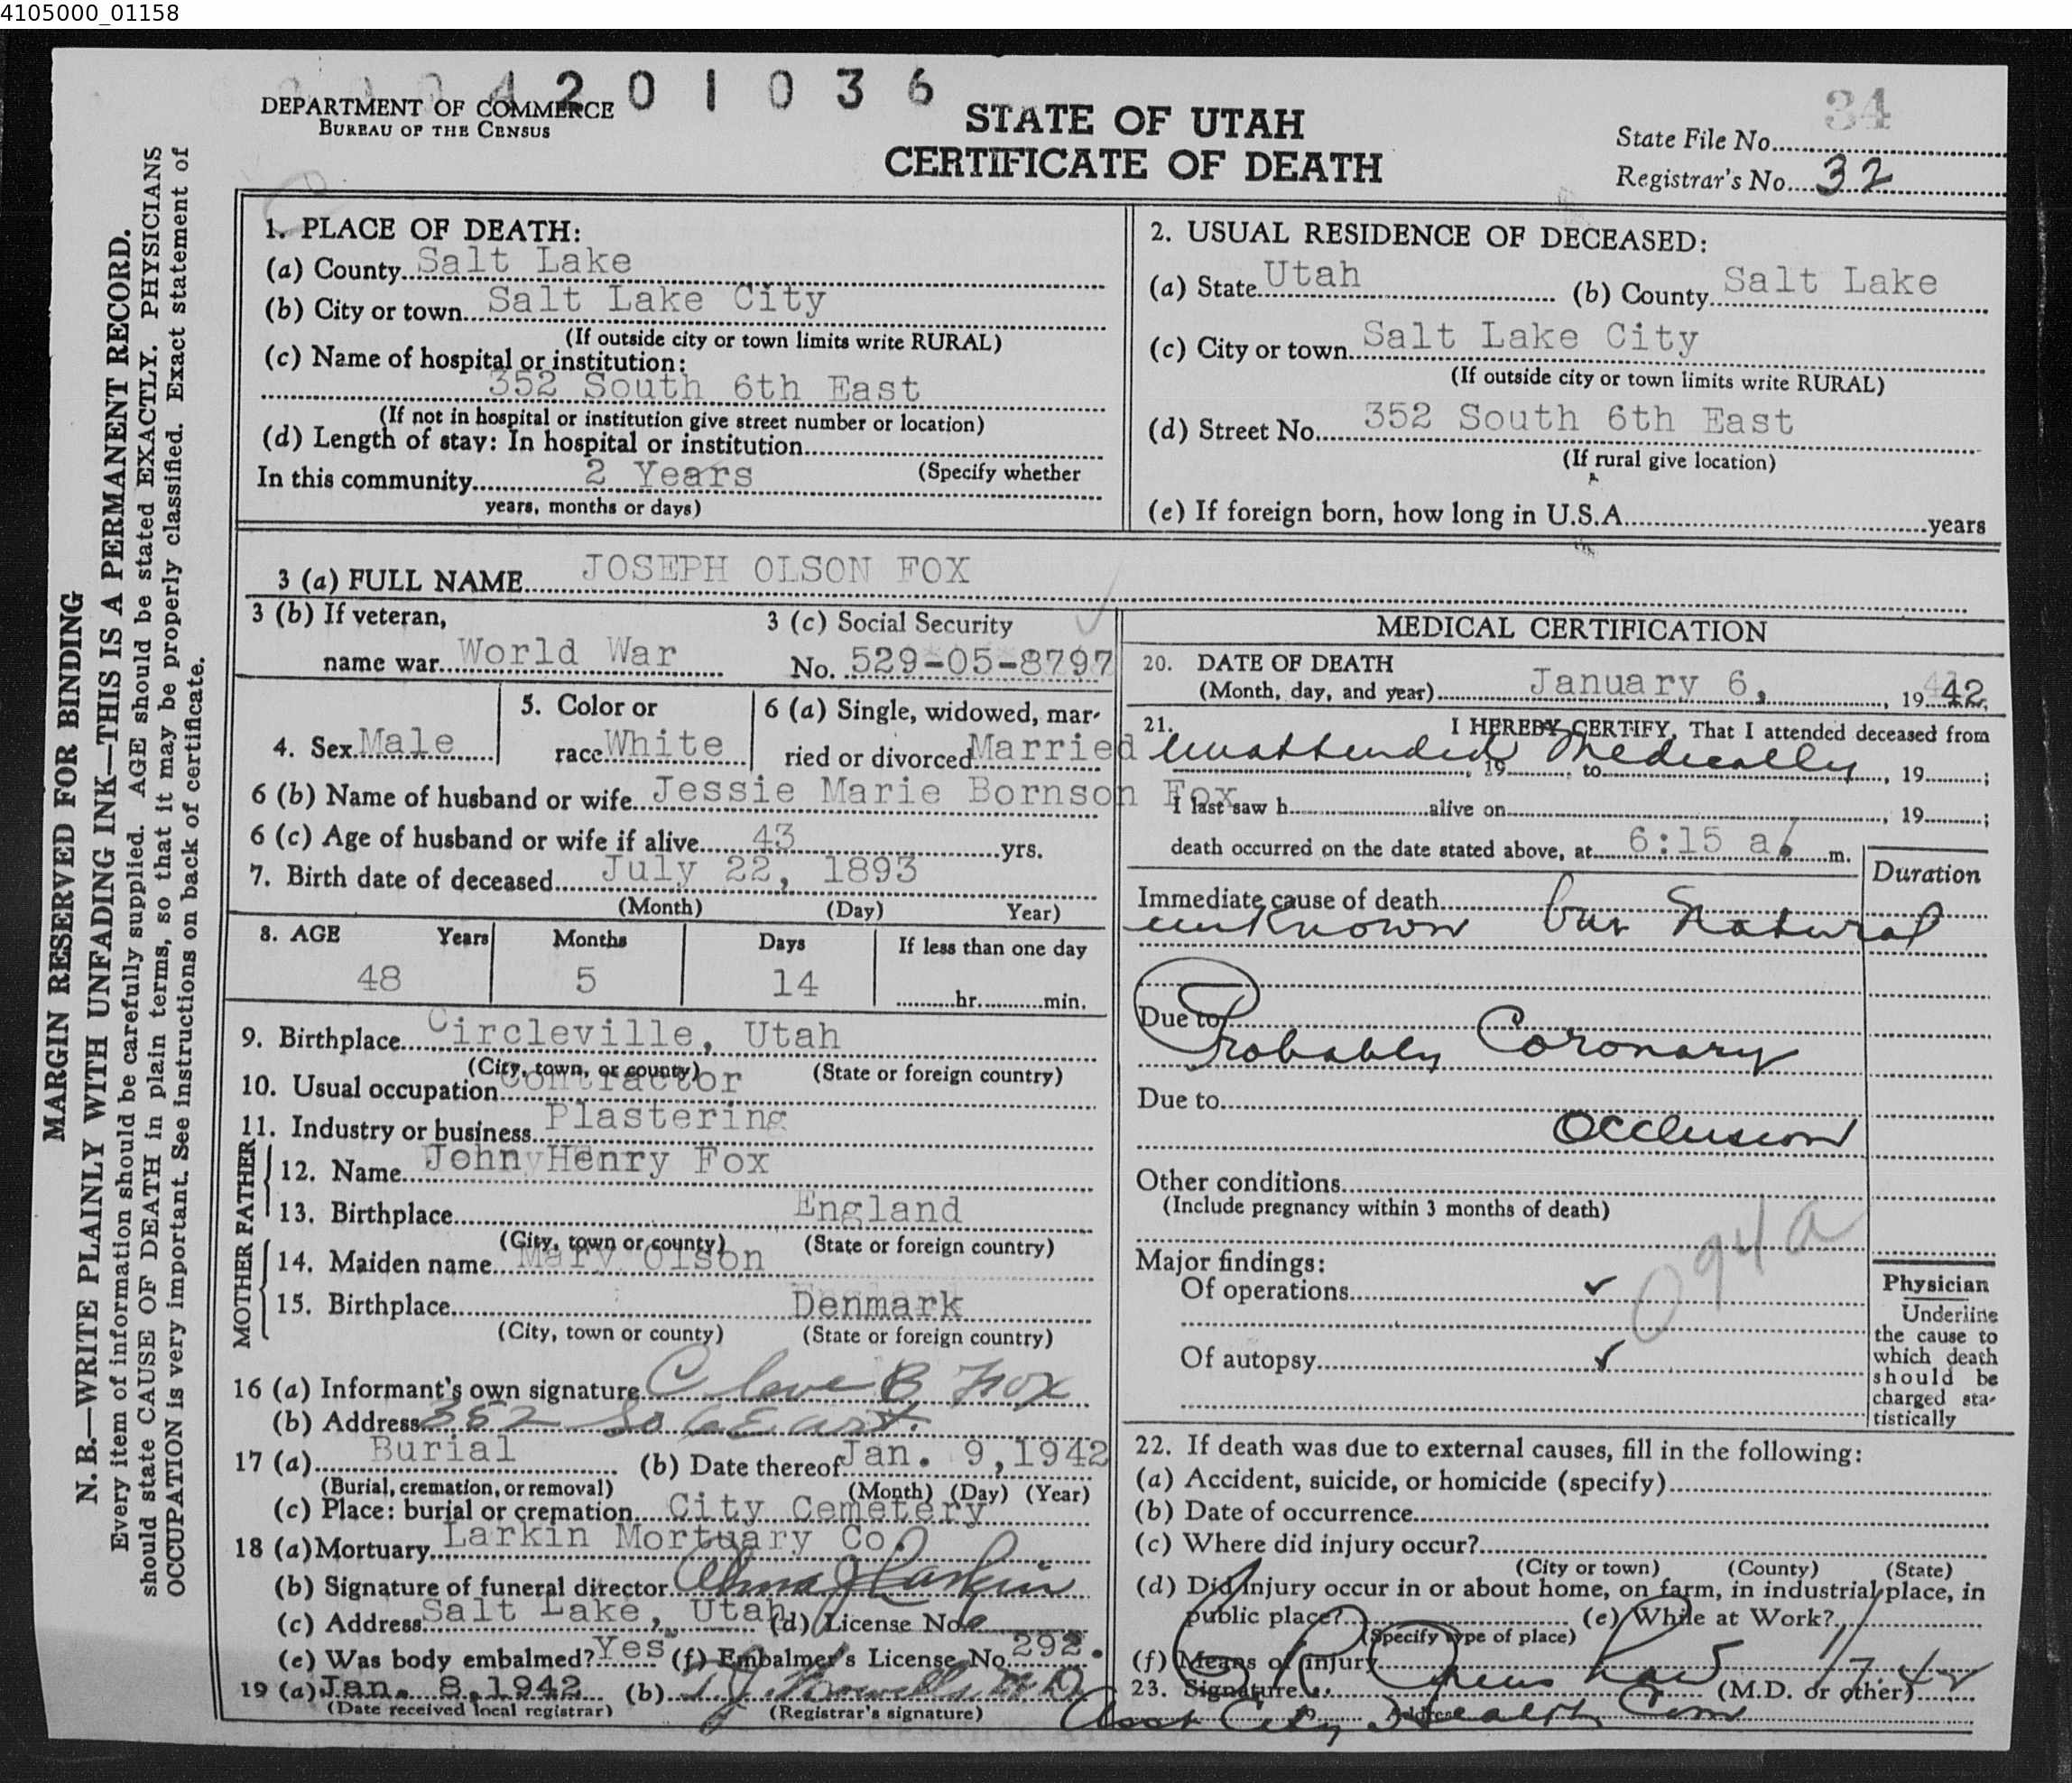 4105000_01158
4201036
DEPARTMENT OF COMMERCE
BUREAU OF THE CENSUS
STATE OF UTAH
CERTIFICATE OF DEATH
34
State File No.
Registrar's No. 32
MARGIN RESERVED FOR BINDING
N. B.—WRITE PLAINLY WITH UNFADING INK—THIS IS A PERMANENT RECORD.
Every item of information should be carefully supplied. AGE should be stated EXACTLY. PHYSICIANS
should state CAUSE OF DEATH in plain terms, so that it may be properly classified. Exact statement of
OCCUPATION is very important. See instructions on back of certificate.
1. PLACE OF DEATH:
(a) County Salt Lake
(b) City or town Salt Lake City
(If outside city or town limits write RURAL)
(c) Name of hospital or institution:
352 South 6th East
(If not in hospital or institution give street number or location)
(d) Length of stay: In hospital or institution
In this community 2 Years (Specify whether
years, months or days)
2. USUAL RESIDENCE OF DECEASED:
(a) State Utah (b) County Salt Lake
(c) City or town Salt Lake City
(If outside city or town limits write RURAL)
(d) Street No. 352 South 6th East
(If rural give location)
(e) If foreign born, how long in U.S.A. years
3 (a) FULL NAME JOSEPH OLSON FOX
3 (b) If veteran,
name war World War
3 (c) Social Security
No. 529-05-8797
4. Sex Male
5. Color or
race White
6 (a) Single, widowed, mar-
ried or divorced Married
6 (b) Name of husband or wife Jessie Marie Bornson Fox
6 (c) Age of husband or wife if alive 43 yrs.
7. Birth date of deceased July 22, 1893
(Month) (Day) Year)
8. AGE Years Months Days If less than one day
48 5 14 hr. min.
9. Birthplace Circleville, Utah
(City, town, or county) (State or foreign country)
10. Usual occupation Contractor
11. Industry or business Plastering
FATHER
12. Name John Henry Fox
13. Birthplace England
(City, town or county) (State or foreign country)
MOTHER
14. Maiden name Mary Olson
15. Birthplace Denmark
(City, town or county) (State or foreign country)
16 (a) Informant's own signature Cleve B Fox
(b) Address 352 So 6 East.
17 (a) Burial (b) Date thereof Jan. 9, 1942
(Burial, cremation, or removal) (Month) (Day) (Year)
(c) Place: burial or cremation City Cemetery
18 (a) Mortuary Larkin Mortuary Co.
(b) Signature of funeral director Alma J Larkin
(c) Address Salt Lake, Utah (d) License No. 6
(e) Was body embalmed? Yes (f) Embalmer's License No. 292.
19 (a) Jan. 8, 1942 (b) T J Howells M D
(Date received local registrar) (Registrar's signature)
MEDICAL CERTIFICATION
20. DATE OF DEATH
(Month, day, and year) January 6, , 1942
21. I HEREBY CERTIFY, That I attended deceased from
Unattended Medically , 19 to , 19 ;
I last saw h alive on , 19 ;
death occurred on the date stated above, at 6:15 a. m.
Duration
Immediate cause of death
unknown but Natural
Due to
Probably Coronary
Due to
Occlusion
Other conditions
(Include pregnancy within 3 months of death)
094a
Major findings:
Of operations ✓
Of autopsy ✓
Physician
Underline
the cause to
which death
should be
charged sta-
tistically
22. If death was due to external causes, fill in the following:
(a) Accident, suicide, or homicide (specify)
(b) Date of occurrence
(c) Where did injury occur?
(City or town) (County) (State)
(d) Did injury occur in or about home, on farm, in industrial place, in
public place? (e) While at Work?
(Specify type of place)
(f) Means of injury
23. Signature (M.D. or other)
Address
Asst City Health Com